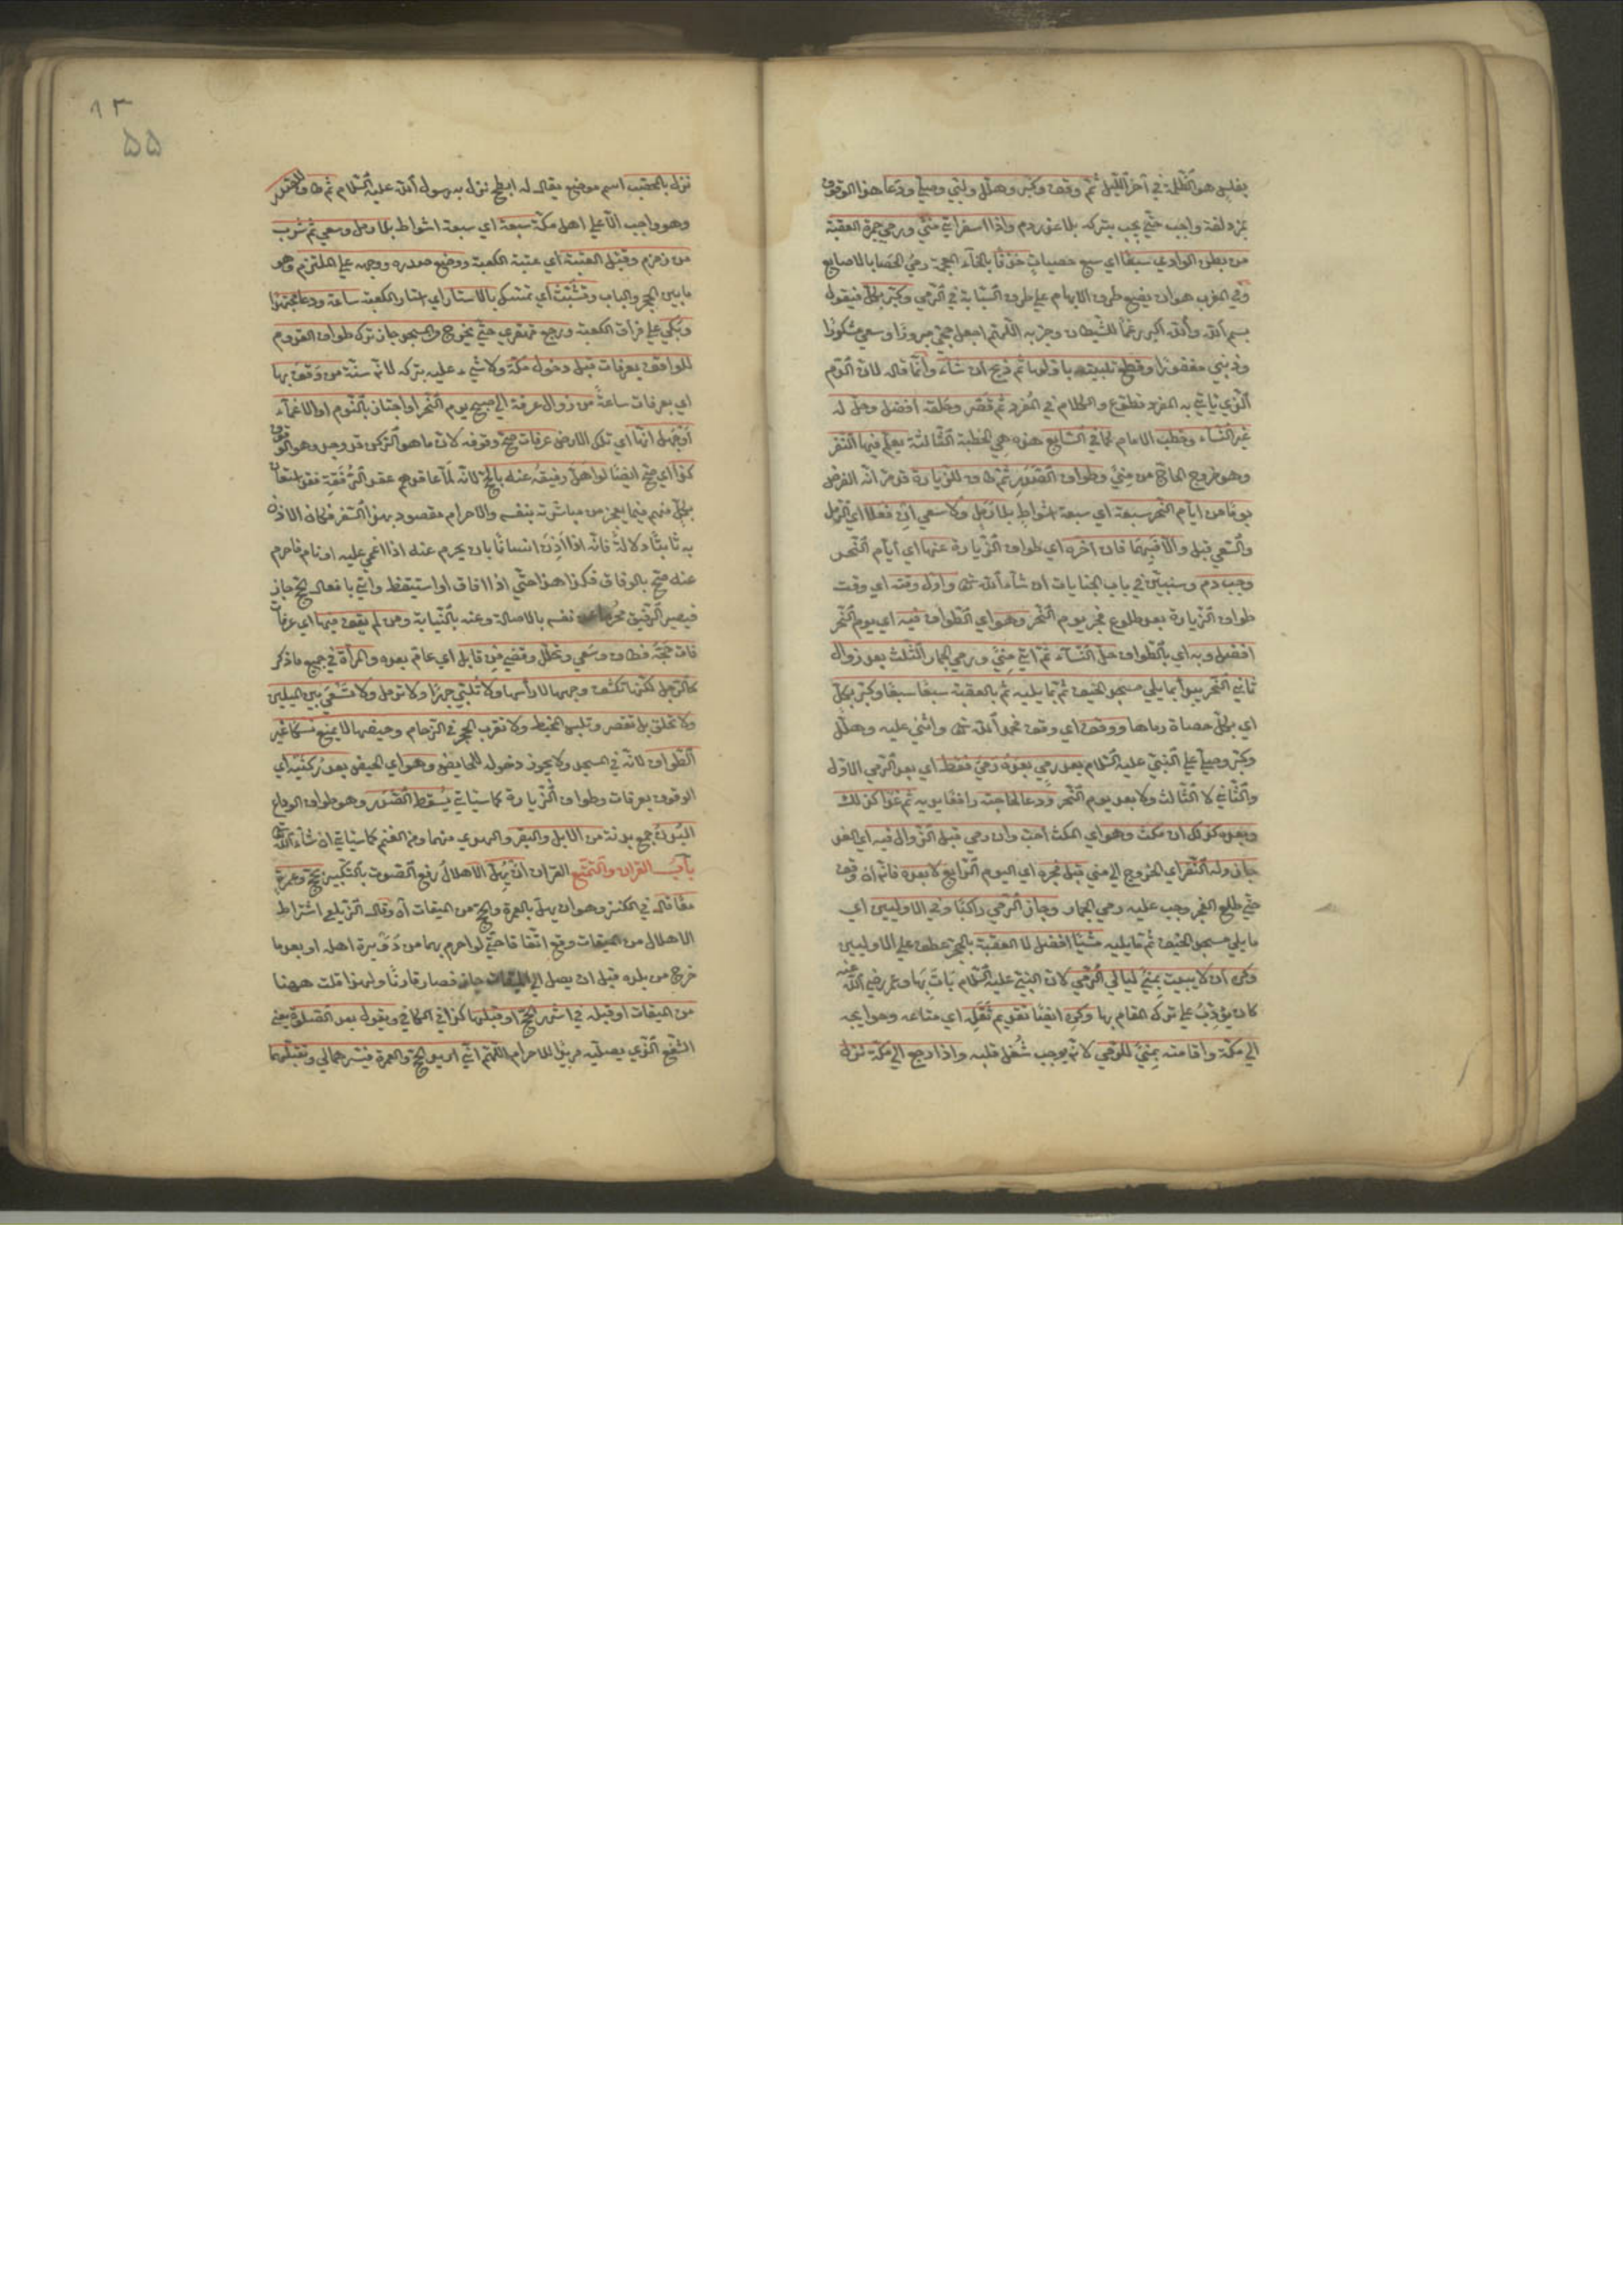 بغلس هو الظلمة في آخر الليل ثم وقف وكبر وهلل ولبي وصلى ودعا هذا الوقوف
بمزدلفة واجب حتى يجب بتركه بلا عذر دم واذا اسفر اتى منى ورمى جمرة العقبة
من بطن الوادي سبعا اي سبع حصيات خذفا بالخاء المعجمة رمي الحصا بالاصابع
وفي المغرب هو ان يضع طرف الابهام على طرف السبابة في الرمي وكبر بكل فيقول
بسم الله والله اكبر رغما للشيطان وحزبه اللهم اجعل حجي مبرورا وسعي مشكورا
وذنبي مغفورا وقطع تلبيته باولها ثم ذبح ان شاء وانما قال لان الدم
الذي ياتي به المفرد تطوع والكلام في المفرد ثم قصر وحلقه افضل وحل له
غير النساء وخطب الامام كما في السابع هذه هي الخطبة الثالثة يعلم فيها النفر
وهو خروج الحاج من منى وطواف الصدر ثم طاف للزيارة قد مر انه الفرض
يوما من ايام النحر سبعة اي سبعة اشواط بلا رمل ولا سعي ان فعلا اي الرمل
والسعي قبل والا فبهما فان اخره اي طواف الزيارة عنها اي ايام النحر
وجب دم وسنبين في باب الجنايات ان شاء الله تعالى واول وقته اي وقت
طواف الزيارة بعد طلوع فجر يوم النحر وهو اي الطواف فيه اي يوم النحر
افضل وبه اي بالطواف حل النساء ثم اتى منى ورمى الجمار الثلث بعد زوال
ثاني النحر يبدأ بما يلي مسجد الخيف ثم بما يليه ثم بالعقبة سبعا سبعا وكبر بكل
اي بكل حصاة رماها ووقف اي وقف فحمد الله تعالى واثنى عليه وهلل
وكبر وصلى على النبي عليه السلام بعد رمي بعده رمي فقط اي بعد الرمي الاول
والثاني لا الثالث ولا بعد يوم النحر ودعا لحاجته رافعا يديه ثم غدا كذلك
وبعده كذلك ان مكث وهو اي المكث احب وان رمى قبل الزوال فيه اي الغد
جاز وله النفر اي الخروج الى منى قبل فجره اي اليوم الرابع لا بعده فانه ان وقف
حتى طلع الفجر وجب عليه رمي الجمار وجاز الرمي راكبا وفي الاوليين اي
ما يلي مسجد الخيف ثم ما يليه مشيا افضل لا العقبة بالجر عطف على الاوليين
وكره ان لا يبيت بمنى ليالي الرمي لان النبي عليه السلام بات بها وعمر رضي الله عنه
كان يؤدب على ترك المقام بها وكره ايضا تقديم ثقله اي متاعه وحوايجه
الى مكة واقامته بمنى للرمي لانه يوجب شغل قلبه واذا رجع الى مكة نزل
١٣
۵۵
نزل بالمحصب اسم موضع يقال له ابطح نزل به رسول الله عليه السلام ثم طاف للصدر
وهو واجب الا على اهل مكة سبعة اي سبعة اشواط بلا رمل وسعي ثم شرب
من زمزم وقبل العتبة اي عتبة الكعبة ووضع صدره ووجهه على الملتزم وهو
ما بين الحجر والباب وتشبث اي تمسك بالاستار اي استار الكعبة ساعة ودعا مجتهدا
وبكى على فراق الكعبة ورجع قهقرى حتى يخرج من المسجد جاز ترك طواف القدوم
للواقف بعرفات قبل دخول مكة ولا شيء عليه بتركه لانه سنة من وقف بها
اي بعرفات ساعة من زوال عرفة الى صبح يوم النحر او اجتاز بالنوم او الاغماء
او جهل انها اي تلك الارض عرفات صح وقوفه لان ما هو الركن قد وجد وهو الوقوف
كذا اي صح ايضا لو اهل رفيقه عنه بالحج لانه لما عاقدهم عقد الرفقة فقد استعان
بكل منهم فيما يعجز من مباشرته بنفسه والاحرام مقصود بهذا السفر فكان الاذن
به ثابتا دلالة فانه اذا اذن انسانا بان يحرم عنه اذا اغمي عليه او نام فاحرم
عنه صح بالوفاق فكذا هذا حتى اذا افاق او استيقظ واتى بافعال الحج جاز
فيصير الرفيق محرما عن نفسه بالاصالة وعنه بالنيابة ومن لم يقف فيها اي عرفات
فات حجه فطاف وسعى وتحلل وقضى من قابل اي عام بعده والمرأة في جميع ما ذكر
كالرجل لكنها تكشف وجهها لا رأسها ولا تلبي جهرا ولا ترمل ولا تسعى بين الميلين
ولا تحلق بل تقصر وتلبس المخيط ولا تقرب الحجر في الزحام وحيضها لا يمنع نسكا غير
الطواف لانه في المسجد ولا يجوز دخوله للحايض وهو اي الحيض بعد ركنيه اي
الوقوف بعرفات وطواف الزيارة كما سياتي يسقط الصدر وهو طواف الوداع
البدن جمع بدنة من الابل والبقر والهدي منهما ومن الغنم كما سياتي ان شاء الله تعالى
باب القران والتمتع القران ان يهل الاهلال رفع الصوت بالتكبير بحج وعمرة
معا قال في الكنز وهو ان يهل بالعمرة والحج من الميقات وقال الزيلعي اشتراط
الاهلال من الميقات وقع اتفاقا حتى لو احرم بهما من دويرة اهله او بعدما
خرج من بلده قبل ان يصل الى الميقات جاز فصار قارنا ولهذا قلت ههنا
من الميقات او قبله في اشهر الحج او قبلها كذا في الكافي ويقول بعد الصلوة يعني
الشفع الذي يصليه مريدا للاحرام اللهم اني اريد الحج والعمرة فيسرهما لي وتقبلهما